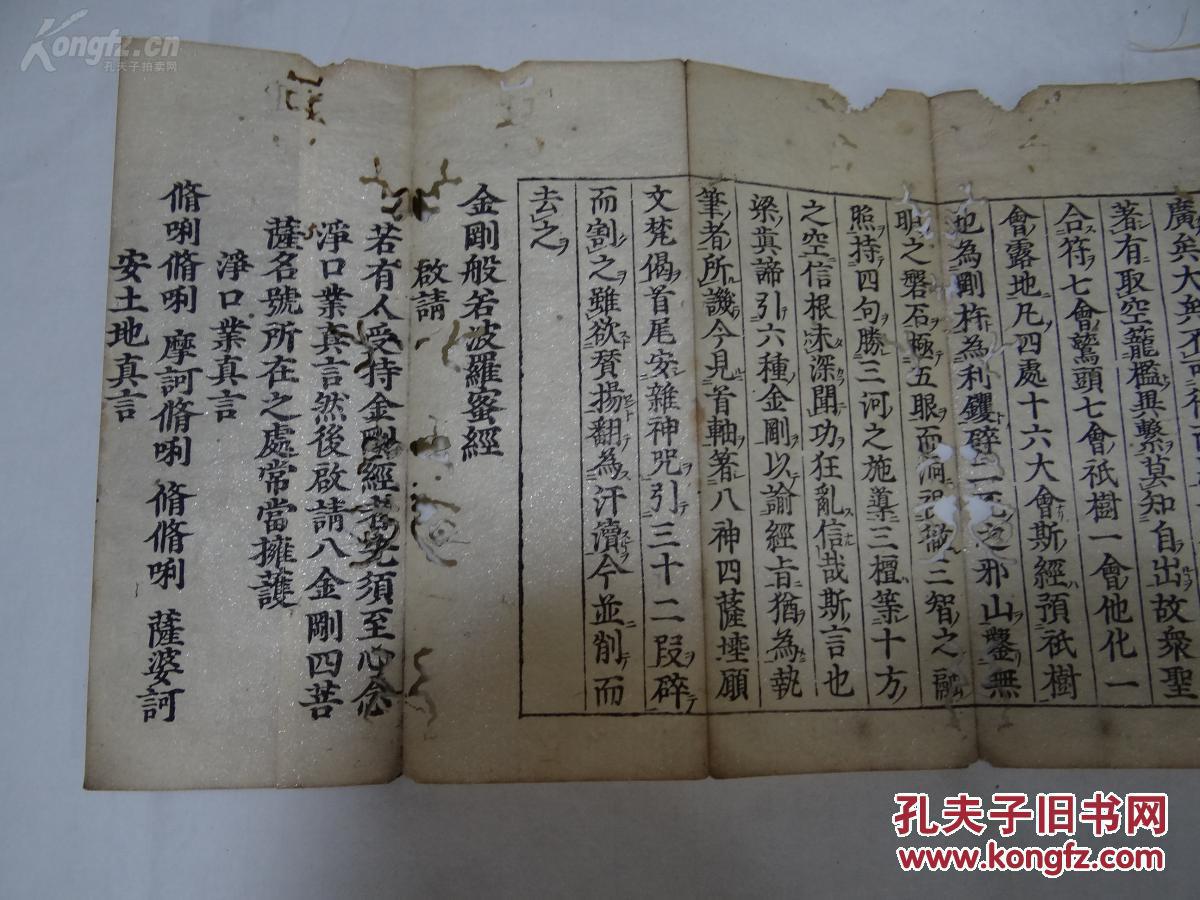 廣矣大矣
著有取空籠檻興繫莫知自出故衆聖
合符七會鷲頭七會祇樹一會他化一
會露地凡四處十六大會斯經預祇樹
也為剛杵為利钁劈二死之邪山鑿無
明之磐石極五眼而洞視徹三智之融
照持四句勝三河之施導三檀等十方
之空信根未深聞功狂亂信哉斯言也
梁真諦引六種金剛以諭經旨猶為執
筆者所譏今見首軸著八神四薩壇願
文梵偈首尾安雜神咒引三十二段碎
而割之雖欲賛揚翻為汗瀆今並削而
去之
金剛般若波羅蜜經
啟請
若有人受持金剛經者先須至心念
淨口業真言然後啟請八金剛四菩
薩名號所在之處常當擁護
淨口業真言
脩唎脩唎 摩訶脩唎 脩脩唎 薩婆訶
安土地真言
Kongfz.cn
孔夫子拍卖网
孔夫子旧书网
www.kongfz.com